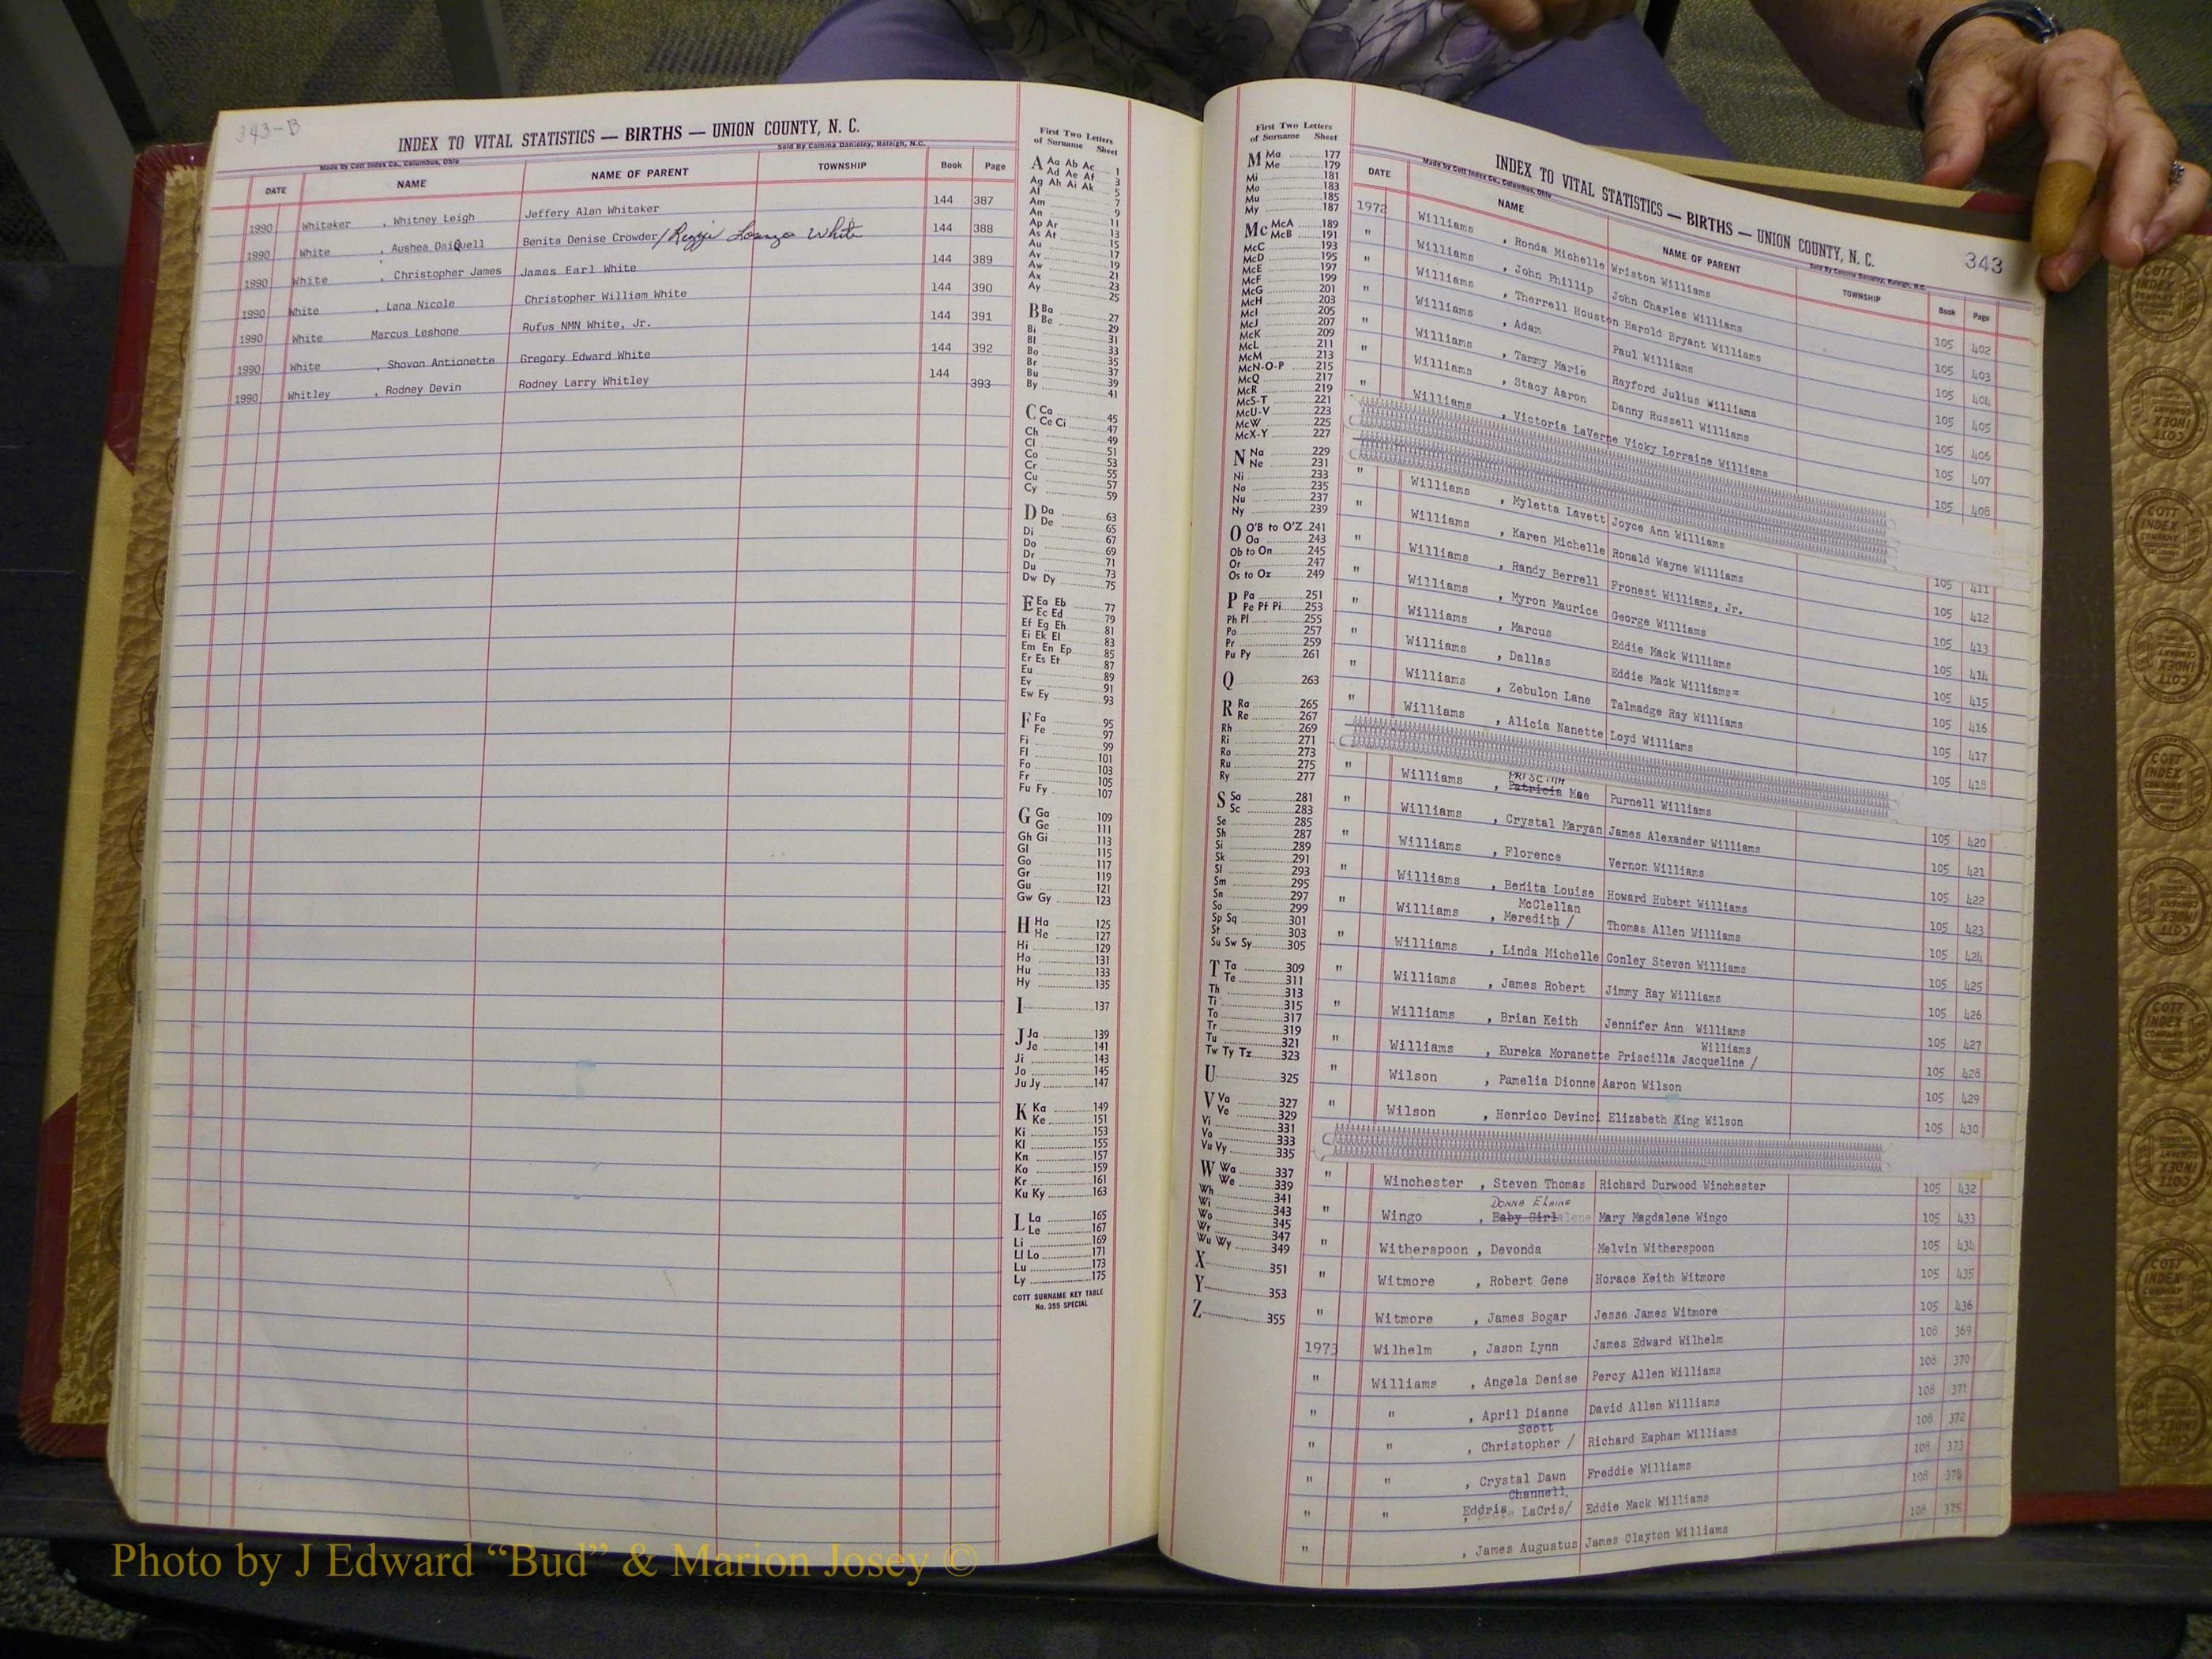 343-B
INDEX TO VITAL STATISTICS — BIRTHS — UNION COUNTY, N. C.
Made by Cott Index Co., Columbus, Ohio Sold By Comma Danieley, Raleigh, N.C.
DATE NAME NAME OF PARENT TOWNSHIP Book Page
1990 Whitaker , Whitney Leigh Jeffery Alan Whitaker 144 387
1990 White , Aushea DaiQuell Benita Denise Crowder/ White 144 388
1990 White , Christopher James James Earl White 144 389
1990 White , Lana Nicole Christopher William White 144 390
1990 White Marcus Leshone Rufus NMN White, Jr. 144 391
1990 White , Shovon Antionette Gregory Edward White 144 392
1990 Whitley , Rodney Devin Rodney Larry Whitley 144 393
First Two Letters
of Surname Sheet
A Aa Ab Ac 1
Ad Ae Af 3
Ag Ah Ai Ak 5
Al 7
Am 9
An 11
Ap Ar 13
As At 15
Au 17
Av 19
Aw 21
Ax 23
Ay 25
B Ba 27
Be 29
Bi 31
Bl 33
Bo 35
Br 37
Bu 39
By 41
C Ca 45
Ce Ci 47
Ch 49
Cl 51
Co 53
Cr 55
Cu 57
Cy 59
D Da 63
De 65
Di 67
Do 69
Dr 71
Du 73
Dw Dy 75
E Ea Eb 77
Ec Ed 79
Ef Eg Eh 81
Ei Ek El 83
Em En Ep 85
Er Es Et 87
Eu 89
Ev 91
Ew Ey 93
F Fa 95
Fe 97
Fi 99
Fl 101
Fo 103
Fr 105
Fu Fy 107
G Ga 109
Ge 111
Gh Gi 113
Gl 115
Go 117
Gr 119
Gu 121
Gw Gy 123
H Ha 125
He 127
Hi 129
Ho 131
Hu 133
Hy 135
I 137
J Ja 139
Je 141
Ji 143
Jo 145
Ju Jy 147
K Ka 149
Ke 151
Ki 153
Kl 155
Kn 157
Ko 159
Kr 161
Ku Ky 163
L La 165
Le 167
Li 169
Ll Lo 171
Lu 173
Ly 175
COTT SURNAME KEY TABLE
No. 355 SPECIAL
First Two Letters
of Surname Sheet
M Ma 177
Me 179
Mi 181
Mo 183
Mu 185
My 187
Mc McA 189
McB 191
McC 193
McD 195
McE 197
McF 199
McG 201
McH 203
McI 205
McJ 207
McK 209
McL 211
McM 213
McN-O-P 215
McQ 217
McR 219
McS-T 221
McU-V 223
McW 225
McX-Y 227
N Na 229
Ne 231
Ni 233
No 235
Nu 237
Ny 239
O O'B to O'Z 241
Oa 243
Ob to On 245
Or 247
Os to Oz 249
P Pa 251
Pe Pf Pi 253
Ph Pl 255
Po 257
Pr 259
Pu Py 261
Q 263
R Ra 265
Re 267
Rh 269
Ri 271
Ro 273
Ru 275
Ry 277
S Sa 281
Sc 283
Se 285
Sh 287
Si 289
Sk 291
Sl 293
Sm 295
Sn 297
So 299
Sp Sq 301
St 303
Su Sw Sy 305
T Ta 309
Te 311
Th 313
Ti 315
To 317
Tr 319
Tu 321
Tw Ty Tz 323
U 325
V Va 327
Ve 329
Vi 331
Vo 333
Vu Vy 335
W Wa 337
We 339
Wh 341
Wi 343
Wo 345
Wr 347
Wu Wy 349
X 351
Y 353
Z 355
INDEX TO VITAL STATISTICS — BIRTHS — UNION COUNTY, N. C. 343
Made by Cott Index Co., Columbus, Ohio Sold By Comma Danieley, Raleigh, N.C.
DATE NAME NAME OF PARENT TOWNSHIP Book Page
1972 Williams , Ronda Michelle Wriston Williams 105 402
" Williams , John Phillip John Charles Williams 105 403
" Williams , Therrell Houston Harold Bryant Williams 105 404
" Williams , Adam Paul Williams 105 405
" Williams , Tammy Marie Rayford Julius Williams 105 406
" Williams , Stacy Aaron Danny Russell Williams 105 407
" Williams , Victoria LaVerne Vicky Lorraine Williams 105 408
" Williams , Myletta Lavett Joyce Ann Williams 105 411
" Williams , Karen Michelle Ronald Wayne Williams 105 412
" Williams , Randy Berrell Fronest Williams, Jr. 105 413
" Williams , Myron Maurice George Williams 105 414
" Williams , Marcus Eddie Mack Williams 105 415
" Williams , Dallas Eddie Mack Williams= 105 416
" Williams , Zebulon Lane Talmadge Ray Williams 105 417
" Williams , Alicia Nanette Loyd Williams 105 418
" Williams , Patricia Mae Purnell Williams 105 420
" Williams , Crystal Maryan James Alexander Williams 105 421
" Williams , Florence Vernon Williams 105 422
" Williams , Benita Louise Howard Hubert Williams 105 423
McClellan
" Williams , Meredith / Thomas Allen Williams 105 424
" Williams , Linda Michelle Conley Steven Williams 105 425
" Williams , James Robert Jimmy Ray Williams 105 426
" Williams , Brian Keith Jennifer Ann Williams 105 427
Williams
" Williams , Eureka Moranette Priscilla Jacqueline / 105 428
" Wilson , Pamelia Dionne Aaron Wilson 105 429
" Wilson , Henrico Devinci Elizabeth King Wilson 105 430
" Winchester , Steven Thomas Richard Durwood Winchester 105 432
DONNA ELAINE
" Wingo , Baby Girl Mary Magdalene Wingo 105 433
" Witherspoon , Devonda Melvin Witherspoon 105 434
" Witmore , Robert Gene Horace Keith Witmore 105 435
" Witmore , James Bogar Jesse James Witmore 105 436
1973 Wilhelm , Jason Lynn James Edward Wilhelm 108 369
" Williams , Angela Denise Percy Allen Williams 108 370
" " , April Dianne David Allen Williams 108 371
Scott
" " , Christopher / Richard Eapham Williams 108 372
" " , Crystal Dawn Freddie Williams 108 373
Channell,
" " Eddria, LaCris/ Eddie Mack Williams 108
" , James Augustus James Clayton Williams 108 375
Photo by J Edward “Bud” & Marion Josey ©